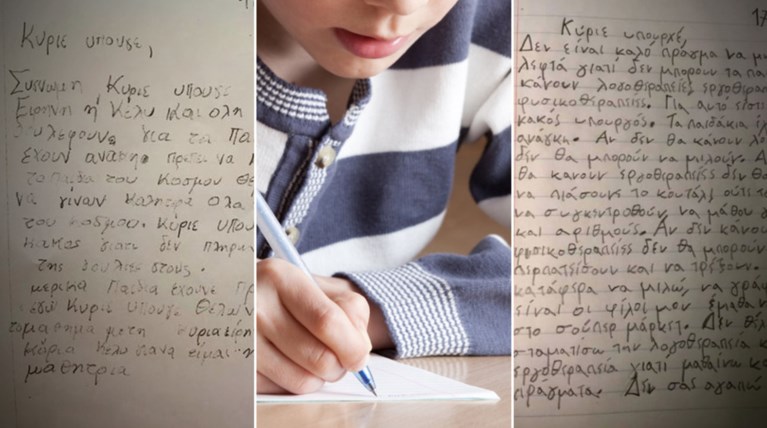 Κύριε υπουργε,
Συγνωμη Κύριε υπουργε
Ειρηνη ή Κέλυ και ολη
δουλεφουνε για τα
έχουν αναγκη πρεπι να
τα παιδια του Κοσμου
να γίνουν καλητερα ολα
του κοσμου. Κύριε
κακος γιατι δεν
της δουλιες στους.
μερικα Παιδια έχουνε
εγω Κυριε Υπουργε Θελω
το μαθημα με τη κυρια
Κύρια Κέλυ να ειμαι
μαθητρια
17
Κύριε υπουργέ,
Δεν είναι καλό πράγμα να
λεφτά γιατί δεν μπορούν τα
κάνουν λογοθεραπείες
φυσικοθεραπείες. Για αυτό
κακος υπουργός. Τα παιδάκια
ανάγκη. Αν δεν θα κάνουν
δεν θα μπορούν να μιλούν. Αν
θα κάνουν εργοθεραπείες δεν
να πιάσουν το κουτάλι ούτε
να συγκεντρωθούν να μάθουν
και αριθμούς. Αν δεν κάνουν
φυσικοθεραπείες δεν θα μπορούν
περπατίσουν και να τρέξουν.
κατάφερα να μιλώ, να
είναι οι φίλοι μου έμαθα
στο σούπερ μάρκετ. Δεν
σταματίσω την λογοθεραπεία
εργοθεραπεία γιατί μαθαίνω
πράγματα. Δεν σας αγαπώ